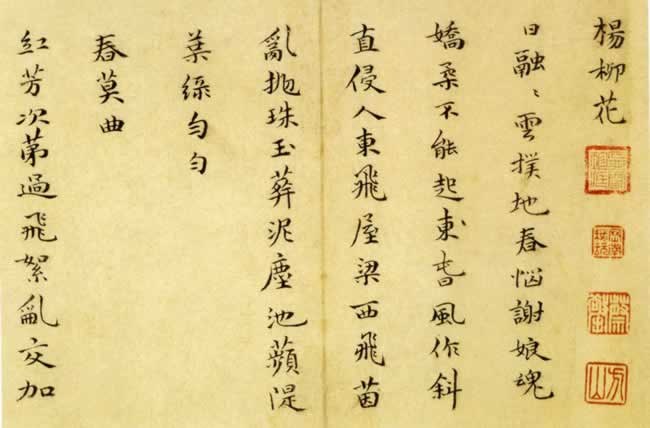 楊柳花
日融〻雲撲地春惱謝娘魂
嬌柔不能起東旹風作斜
直侵人東飛屋梁西飛茵
亂抛珠玉葬泥塵池蘋隄
葉綠勻勻
春莫曲
紅芳次苐過飛絮亂交加